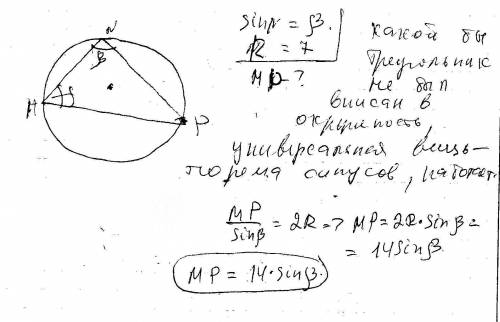 N
β
M
P
sin N = β.
R = 7
MP - ?
какой бы
треугольник
не был
вписан в
окружность,
универсальная вещь -
теорема синусов, работает.
MP / sin β = 2R => MP = 2R · sin β =
= 14 sin β.
MP = 14 · sin β.